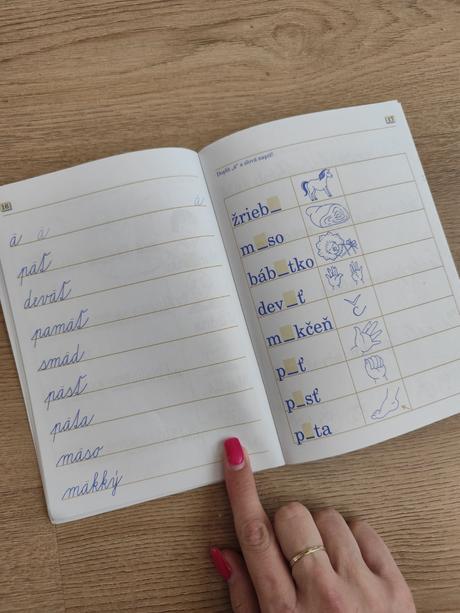 16
ä ä ä
päť
deväť
pamäť
smäd
päsť
päta
mäso
mäkký
17
Doplň „ä“ a slová napíš!
žrieb_
m_so
báb_tko
dev_ť
m_kčeň
p_ť
p_sť
p_ta